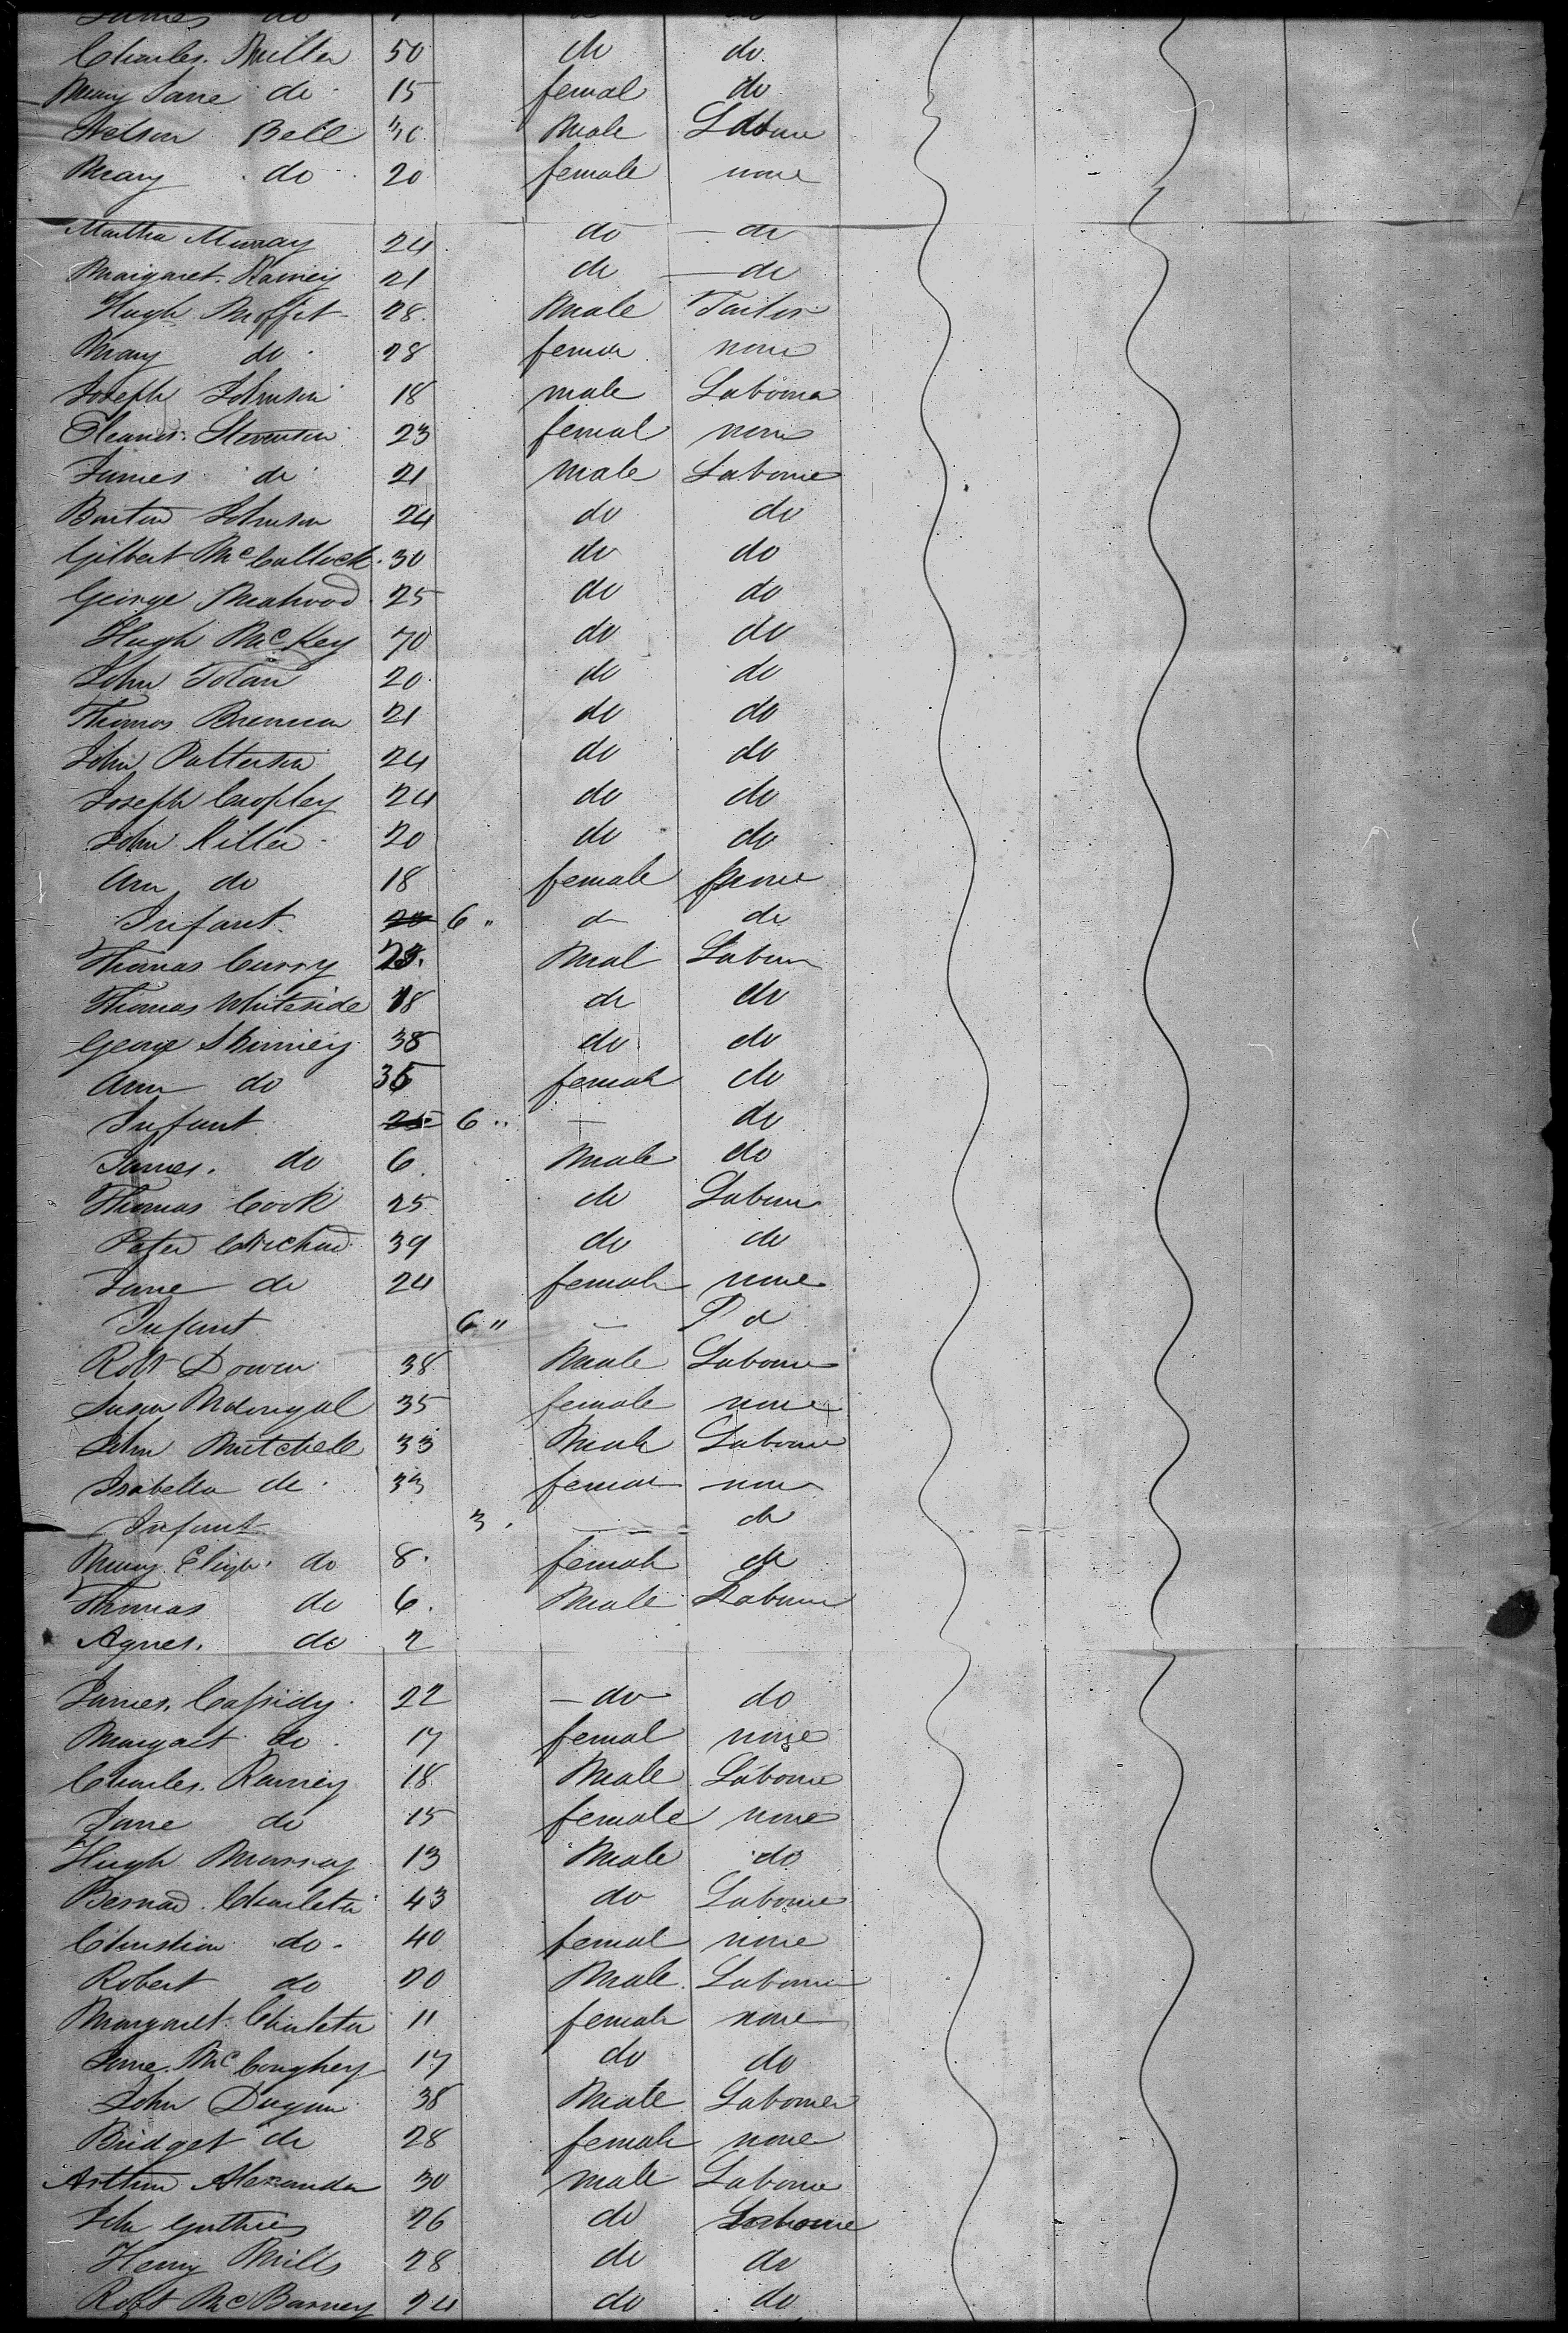 James do
Charles Miller 50 do do
Mary Jane do 15 femal do
Nelson Bell 30 Male Labour
Mary do 20 female none
Martha Murray 24 do do
Margaret Rainey 21 do do
Hugh Moffit 28 Male Tailor
Mary do 28 female none
Joseph Johnson 18 male Labourer
Eleanor Stevenson 23 femal none
James do 21 male Labourer
Burton Johnson 24 do do
Gilbert McCullock 30 do do
George 25 do do
Hugh McKey 70 do do
John Tolan 20 do do
Thomas Brennan 21 do do
John Patterson 24 do do
Joseph Cropley 24 do do
John Miller 20 do do
Ann do 18 female none
Infant 6 " do do
Thomas Curry Mal Labour
Thomas Whiteside 18 do do
George 38 do do
Ann do 36 femal do
Infant 6 " do
James do 6 Male do
Thomas Cook 25 do Labour
Peter 39 do do
Jane do 24 female none
Infant 6 " do
Robt 38 Male Labourer
Susan Mdougal 35 female none
John Mitchell 33 Male Labourer
Isabella do 33 female none
Infant 3 do
Mary Eliza do 8 female do
Thomas do 6 Male Labour
Agnes do 2
James Cassidy 22 do do
Margaret do 17 femal none
Charles Rainey 18 Male Labourer
Jane do 15 female none
Hugh Murray 13 Male do
Bernard Charleton 43 do Labourer
Christian do 40 femal none
Robert do 20 Male Labourer
Margaret Charleton 11 female none
Jane McConghey 17 do do
John Dugan 38 Male Labourer
Bridget do 28 female none
Arthur Alexander 30 male Labourer
John Guthrie 26 do Labourer
Henry Mills 28 do do
Robt McBarney 24 do do